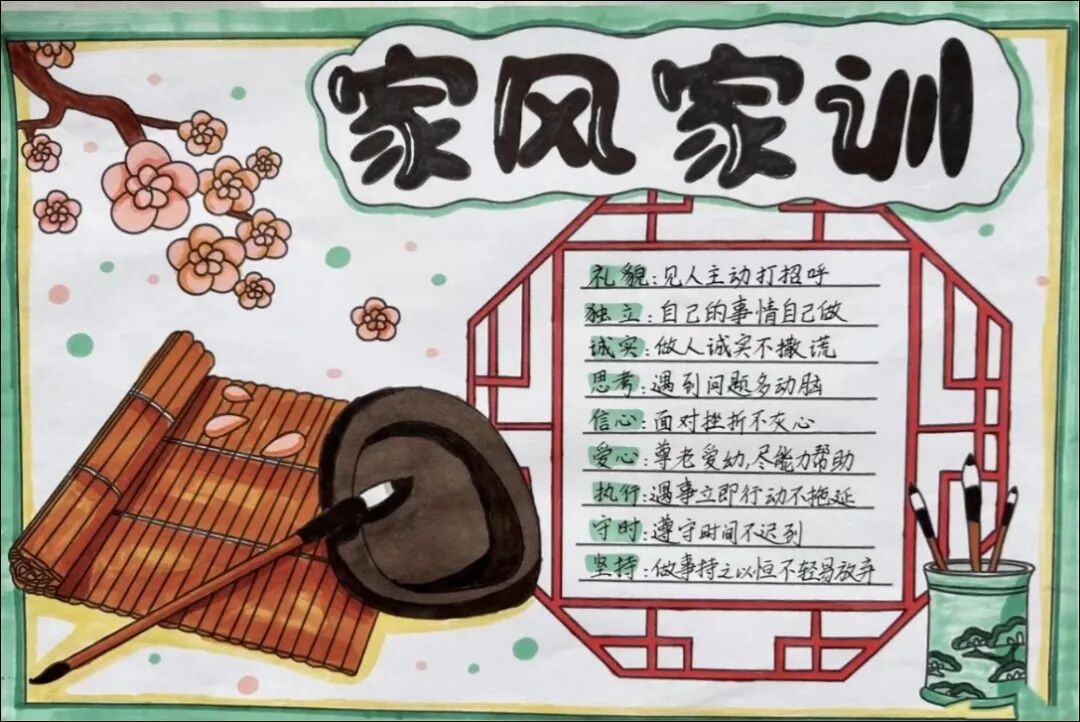 家风家训
礼貌:见人主动打招呼
独立:自己的事情自己做
诚实:做人诚实不撒谎
思考:遇到问题多动脑
信心:面对挫折不灰心
爱心:尊老爱幼,尽能力帮助
执行:遇事立即行动不拖延
守时:遵守时间不迟到
坚持:做事持之以恒不轻易放弃